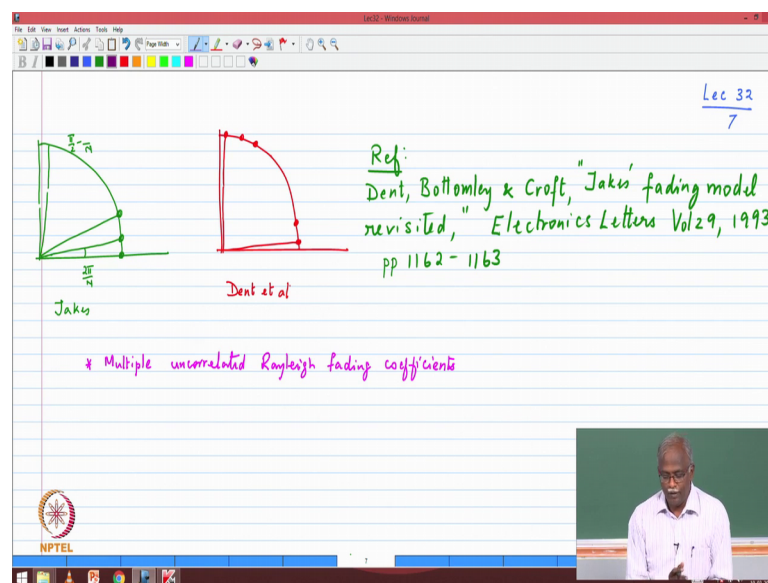 Lec32 - Windows Journal
File Edit View Insert Actions Tools Help
Page Width
B I
Lec 32
7
π/2 - π/N
2π/N
Jakes
Dent et al
Ref:
Dent, Bottomley & Croft, "Jakes' fading model
revisited," Electronics Letters Vol 29, 1993
pp 1162 - 1163
* Multiple uncorrelated Rayleigh fading coefficients
NPTEL
7